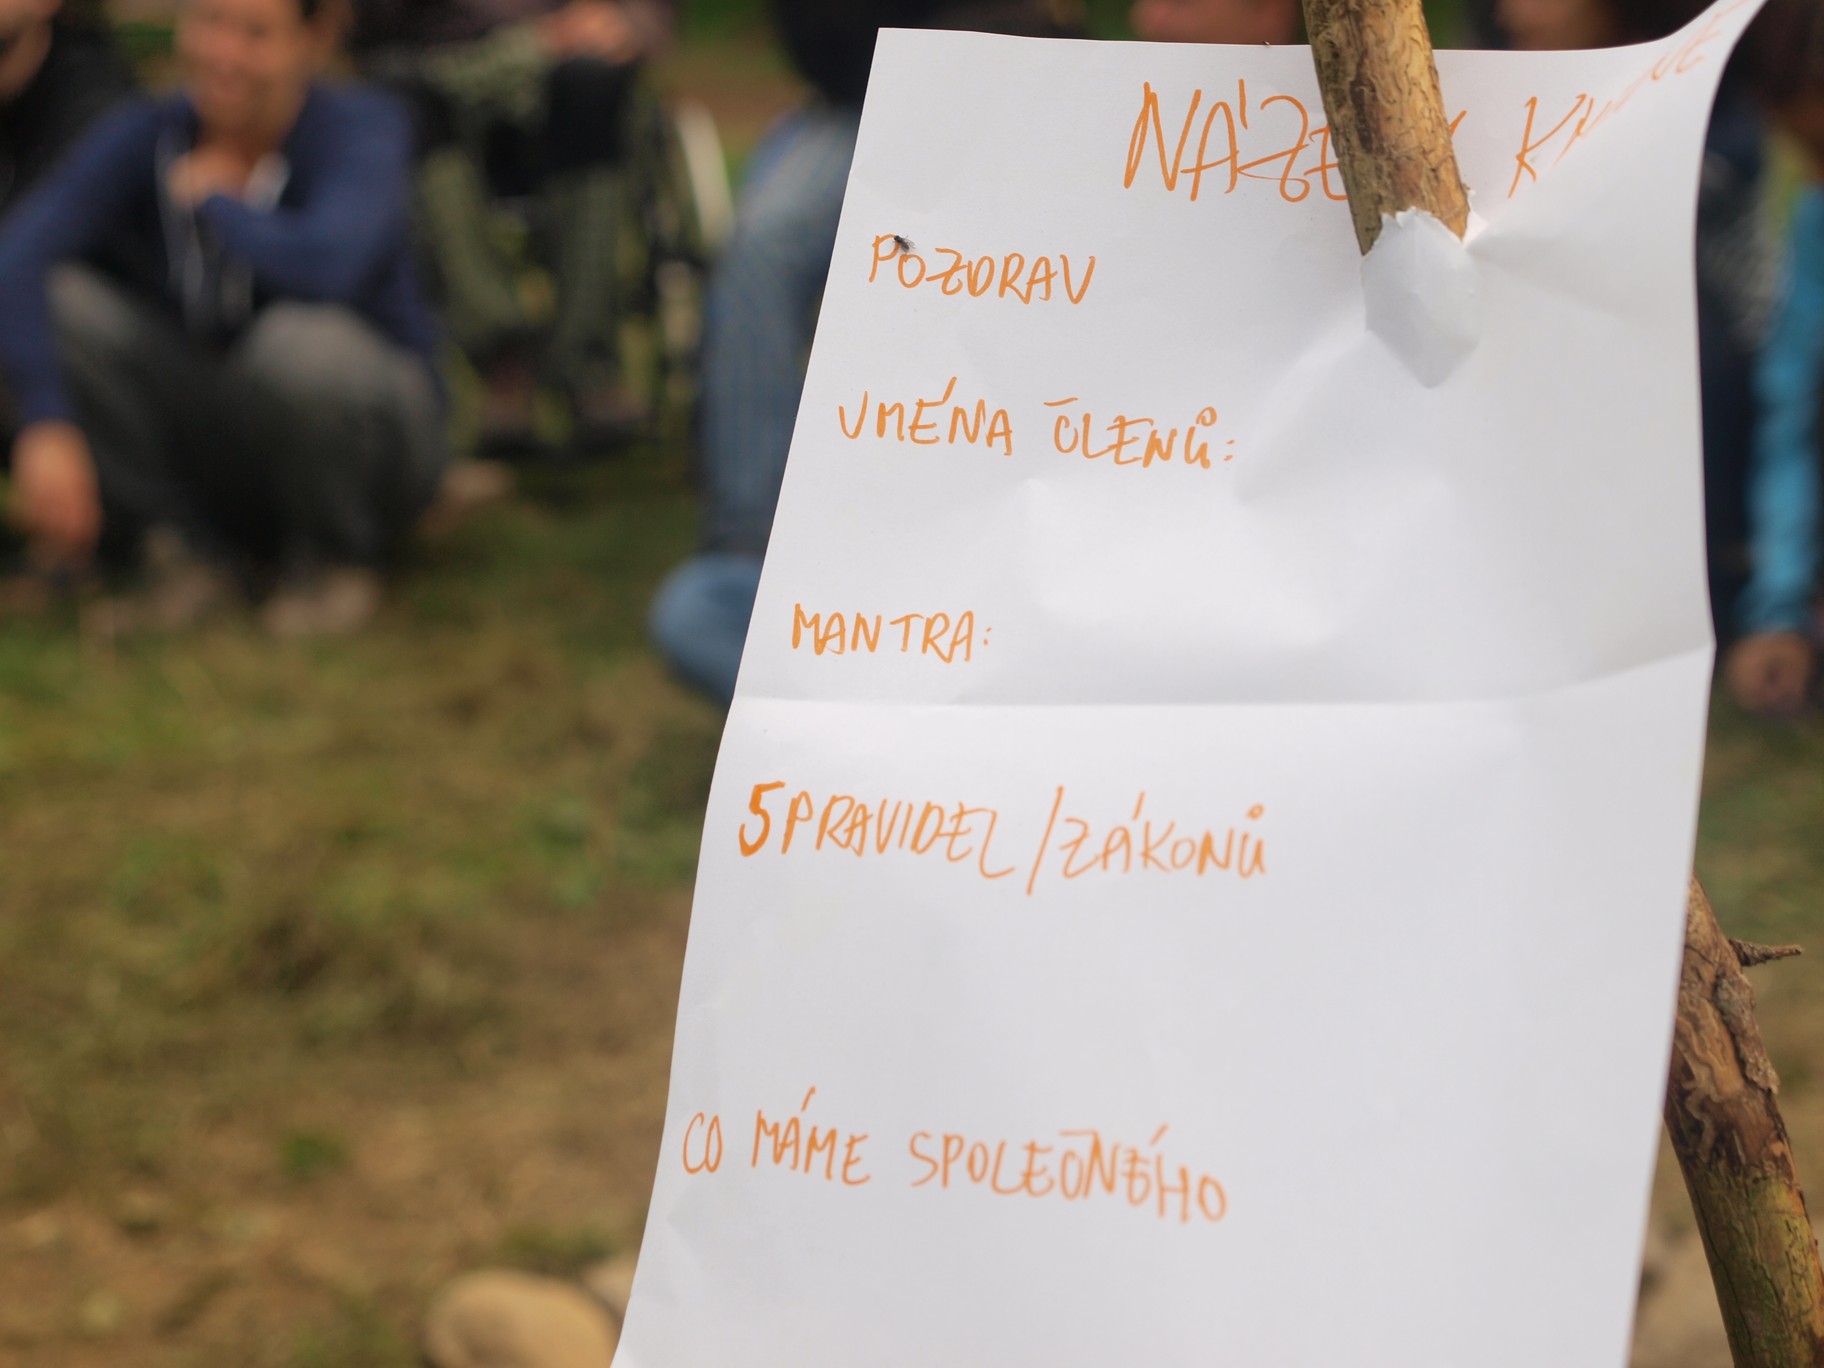 NÁZEV KMENE
POZDRAV
JMÉNA ČLENŮ:
MANTRA:
5 PRAVIDEL/ZÁKONŮ
CO MÁME SPOLEČNÉHO